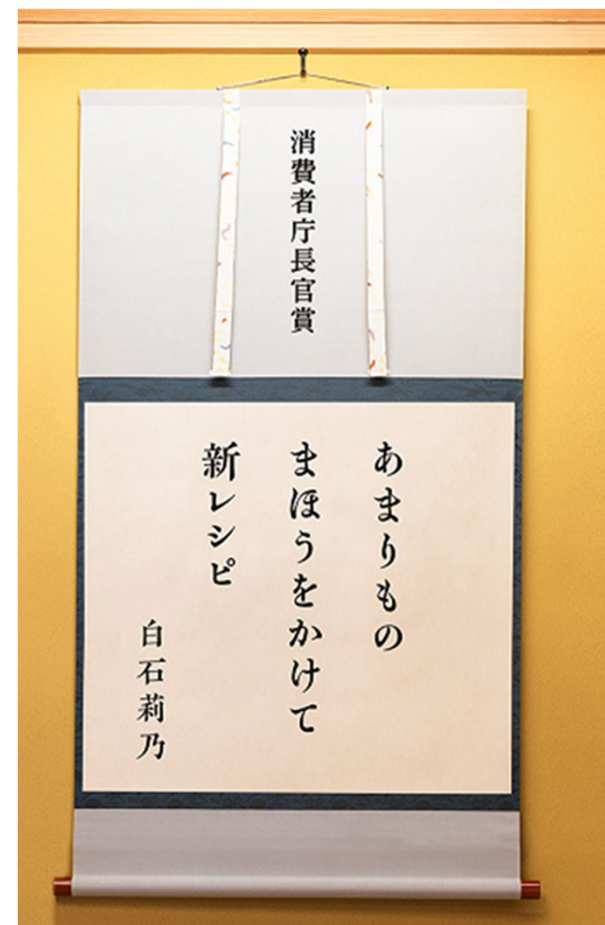 消費者庁長官賞
あまりもの
まほうをかけて
新レシピ
白石莉乃